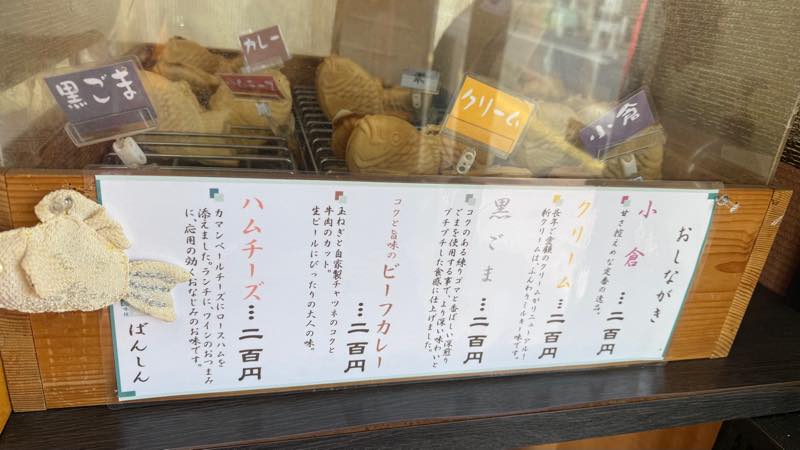 カレー
黒ごま
クリーム
小倉
おしながき
小倉 … 二百円
甘さ控えめな定番の逸品。
クリーム … 二百円
長年ご愛顧のクリームがリニューアル！
新クリームは、ふんわりミルキー味です。
黒ごま … 二百円
コクのある練りゴマと香ばしい深煎り
ごまを使用する事で、より深い味わいと
プチプチした食感に仕上げました。
コクと旨味のビーフカレー
… 二百円
玉ねぎと自家製チャツネのコクと
牛肉のカット。
生ビールにぴったりの大人の味。
ハムチーズ … 二百円
カマンベールチーズにロースハムを
添えました。ランチに、ワインのおつまみ
に、応用の効くおなじみのお味です。
ばんしん